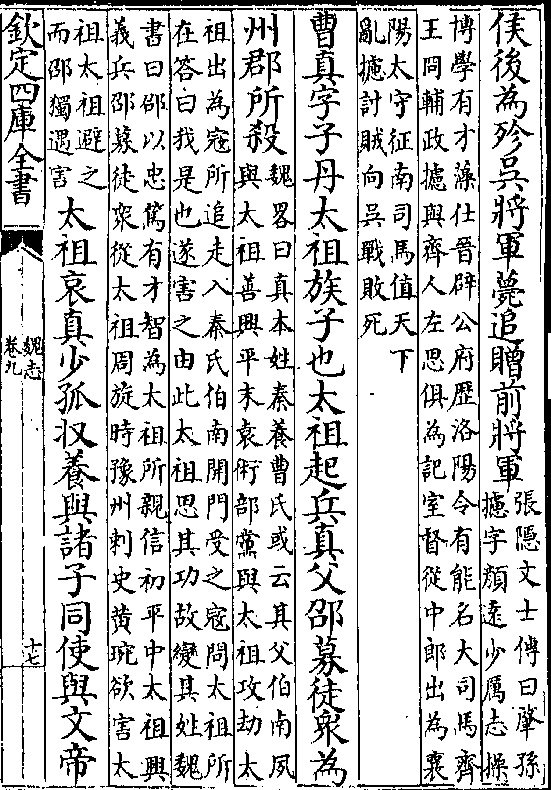 侯後為殄吳將軍薨追贈前將軍
張隱文士傳曰肇孫
攄字顏遠少厲志操
博學有才藻仕晉辟公府歴洛陽令有能名大司馬齊
王冏輔政攄與齊人左思俱為記室督從中郎出為襄
陽太守征南司馬值天下
亂攄討賊向吳戰敗死
曹真字子丹太祖族子也太祖起兵真父邵募徒衆為
州郡所殺
魏畧曰真本姓秦養曹氏或云其父伯南夙
與太祖善興平末袁術部黨與太祖攻劫太
祖出為寇所追走入秦氏伯南開門受之寇問太祖所
在答曰我是也遂害之由此太祖思其功故變其姓魏
書曰邵以忠篤有才智為太祖所親信初平中太祖興
義兵邵募徒衆從太祖周旋時豫州刺史黄琬欲害太
祖太祖避之
而邵獨遇害
太祖哀真少孤収養與諸子同使與文帝
欽定四庫全書
魏志
卷九
十七